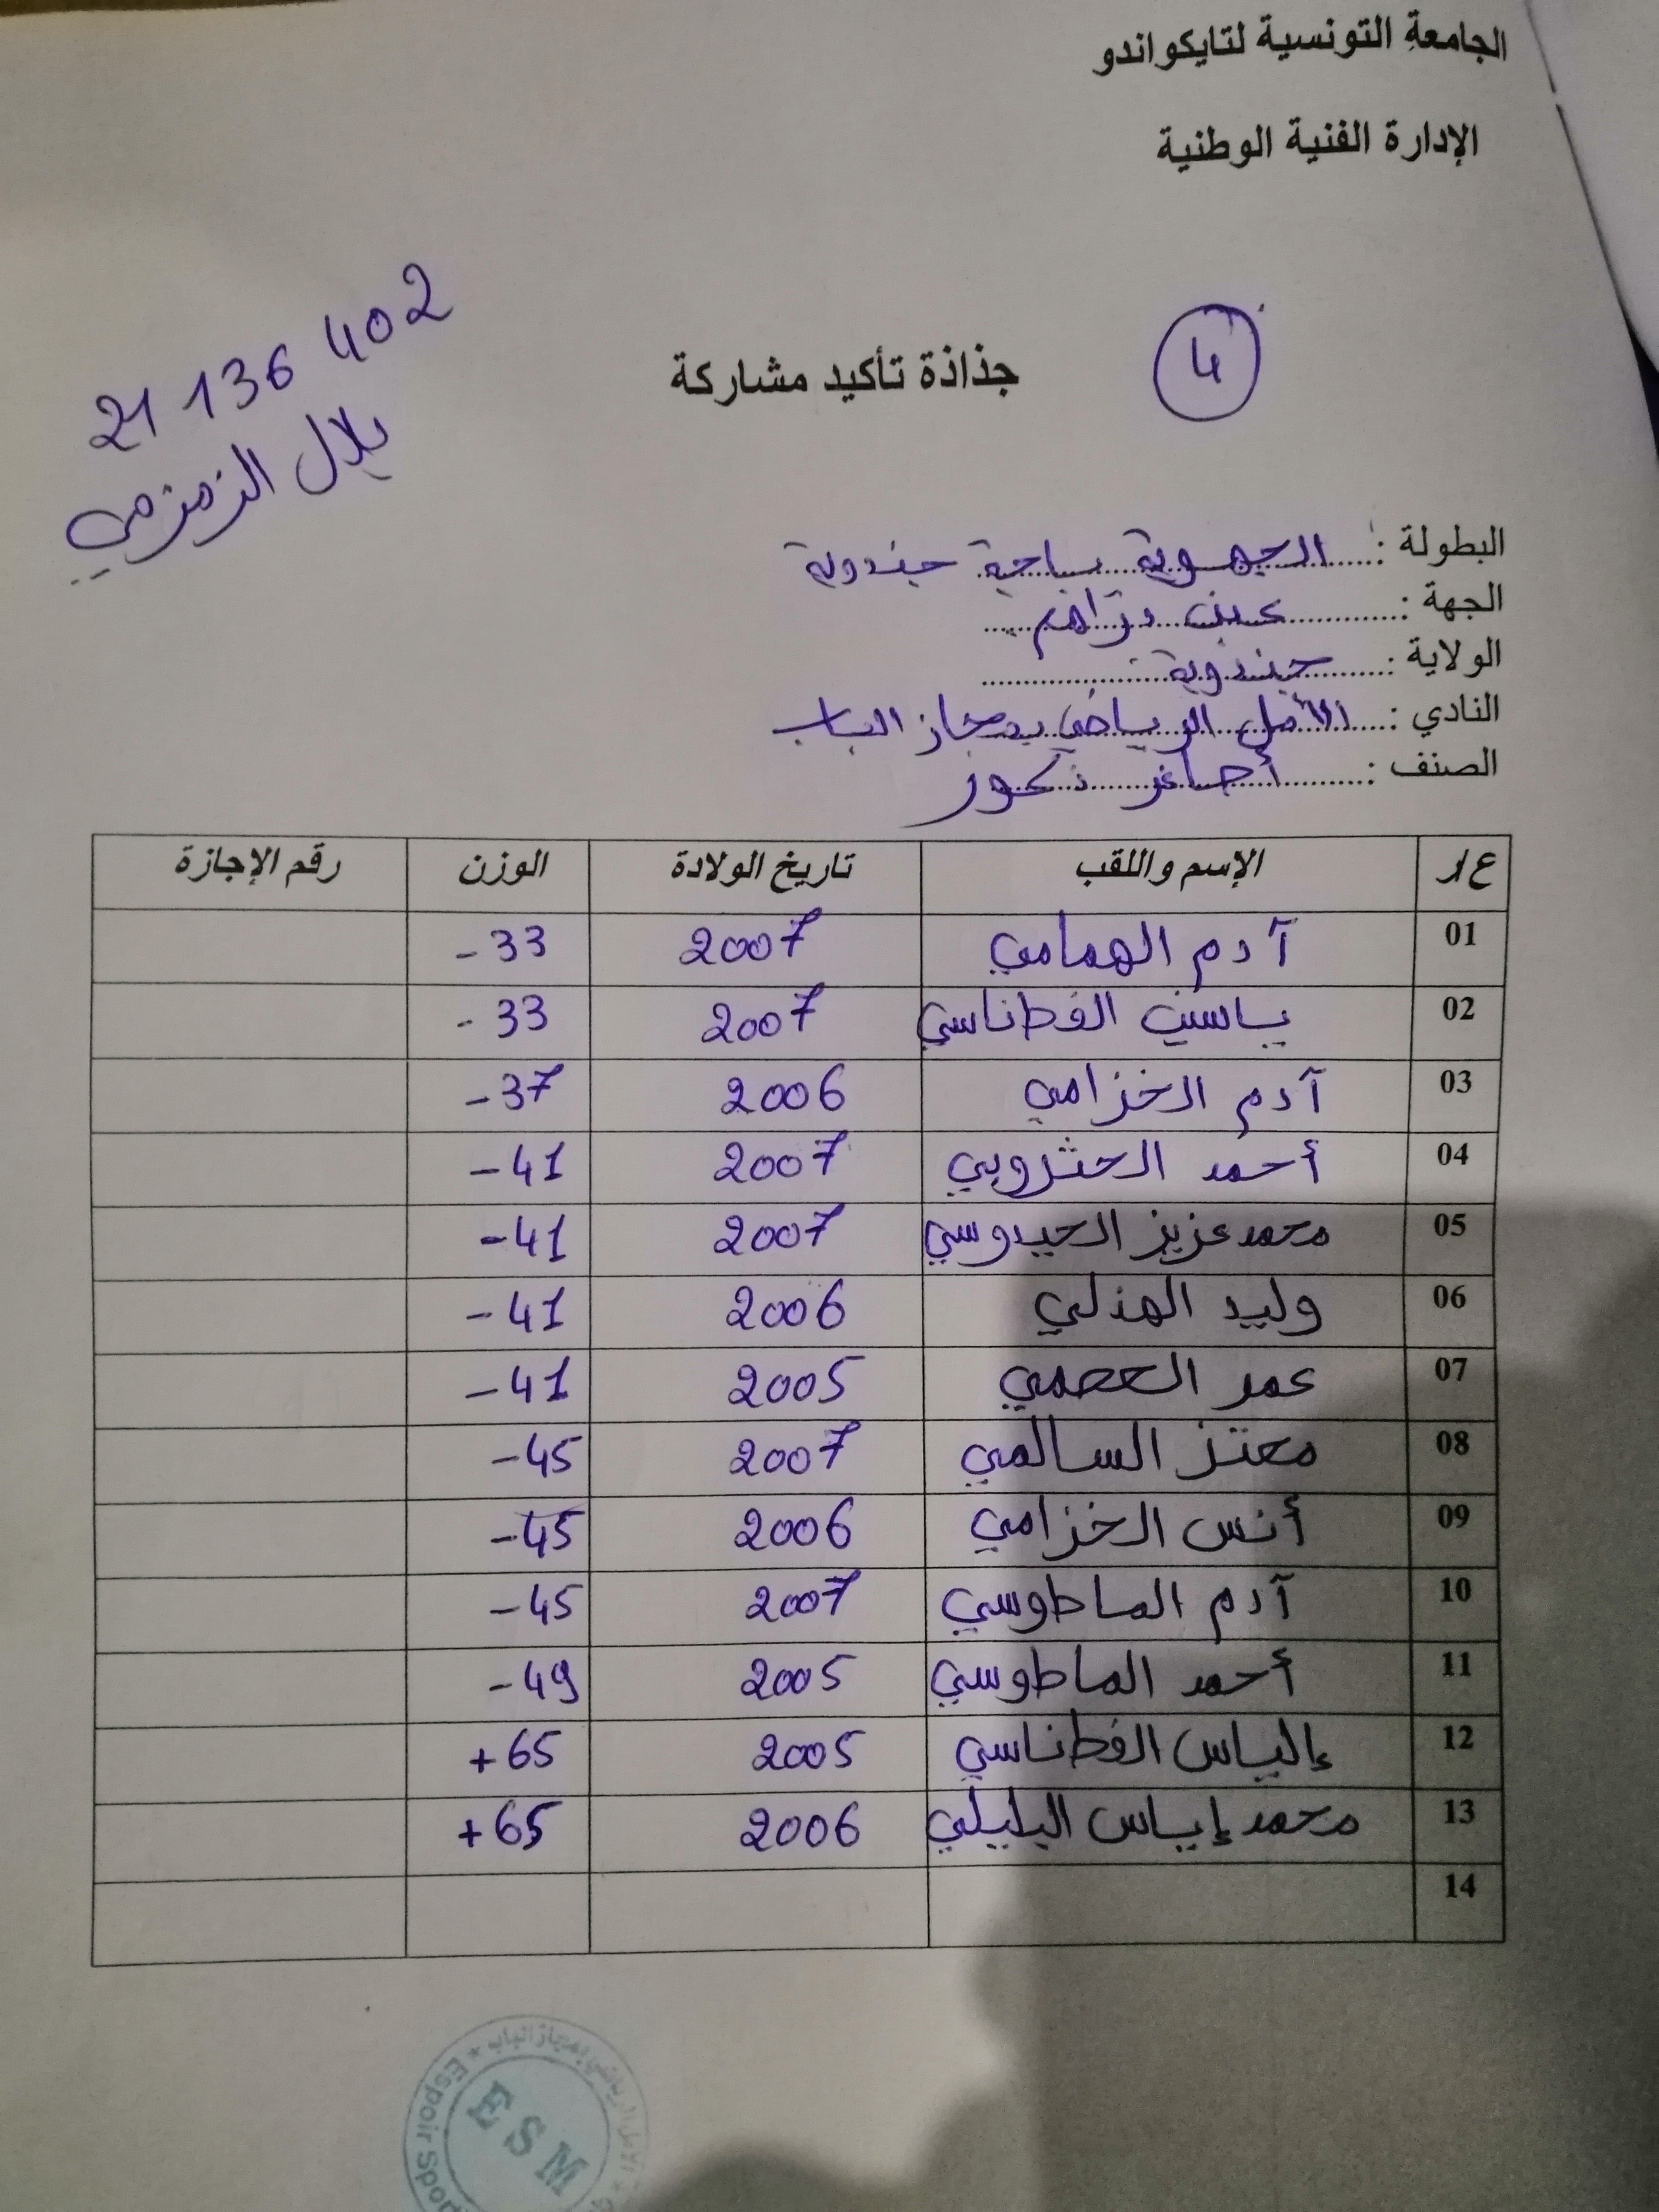 الجامعة التونسية لتايكواندو
الإدارة الفنية الوطنية
21 136 402
بلال الزمزمي
جذاذة تأكيد مشاركة
4
البطولة : الجهوية باجة جندوبة
الجهة : عين دراهم
الولاية : جندوبة
النادي : الأمل الرياضي بمجاز الباب
الصنف : أصاغر ذكور
ع/ر الإسم واللقب تاريخ الولادة الوزن رقم الإجازة
01 آدم الهمامي 2007 -33
02 ياسين الفطناسي 2007 -33
03 آدم الخزامي 2006 -37
04 أحمد الحثروبي 2007 -41
05 محمد عزيز الحيدوسي 2007 -41
06 وليد الهذلي 2006 -41
07 عمر العصمي 2005 -41
08 معتز السالمي 2007 -45
09 أنس الخزامي 2006 -45
10 آدم الماطوسي 2007 -45
11 أحمد الماطوسي 2005 -49
12 إلياس الفطناسي 2005 +65
13 محمد إياس البليلي 2006 +65
14
الأمل الرياضي بمجاز الباب
Espoir Sport
ESM